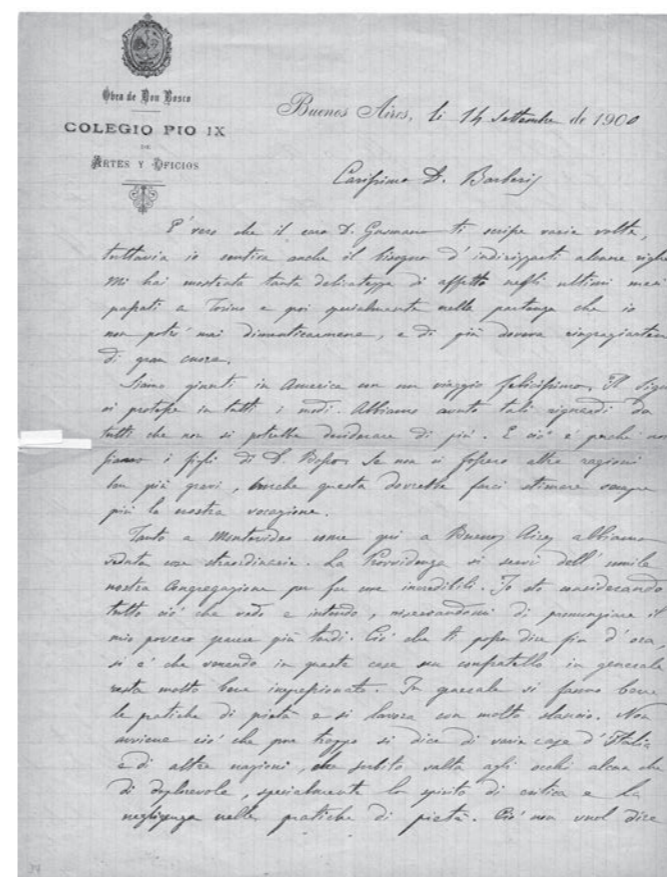 Obra de Don Bosco
COLEGIO PIO IX
DE
ARTES Y OFICIOS
Buenos Aires, li 14 Settembre de 1900
Carissimo D. Barberis
E' vero che il caro D. Gusmano ti scripse varie volte,
tuttavia io sentiva anche il bisogno d'indirizzarti alcune righe
Mi hai mostrata tanta delicatezza di affetto negli ultimi mesi
passati a Torino e poi specialmente nella partenza che io
non potrò mai dimenticarmene, e di più dovera ringraziarten
di gran cuore.
Siamo giunti in America con un viaggio felicissimo. Il Sign
ci protesse in tutti i modi. Abbiamo avuto tali riguardi da
tutti che non si potrebbe desiderare di più. E ciò è perchè noi
siamo i figli di D. Bosco. Se non ci fossero altre ragioni
ben più gravi, anche questa dovrebbe farci stimare sempre
più la nostra vocazione.
Tanto a Montevideo come qui a Buenos Aires abbiamo
veduto cose straordinarie. La Provvidenza si servì dell'umile
nostra Congregazione per far cose incredibili. Io sto considerando
tutto ciò che vedo e intendo, riserbandomi di pronunziare il
mio povero parere più tardi. Ciò che ti posso dire fin d'ora,
si è che venendo in queste case un confratello in generale
resta molto bene impressionato. In generale si fanno bene
le pratiche di pietà e si lavora con molto slancio. Non
avviene ciò che pur troppo si dice di varie case d'Italia
e di altre nazioni, che subito salta agli occhi alcun che
di deplorevole, specialmente lo spirito di critica e la
negligenza nelle pratiche di pietà. Ciò non vuol dire